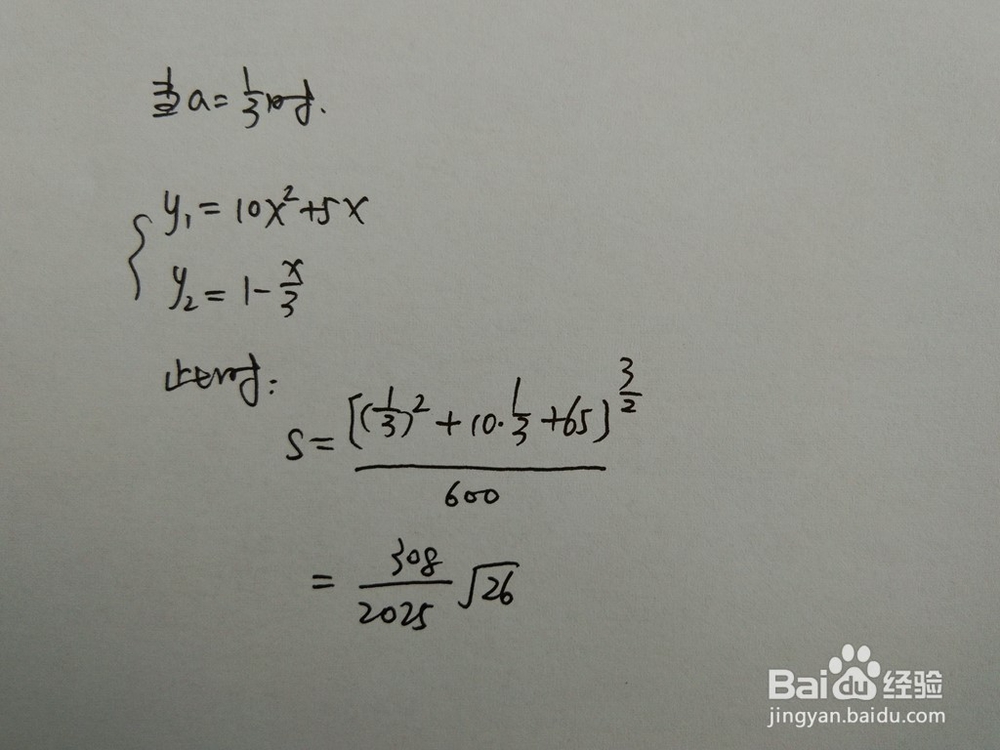 当a=1/3时.
y₁=10x²+5x
y₂=1-x/3
此时:
S=[(1/3)²+10·1/3+65]^(3/2)/600
=308/2025 √26
Baidu经验
jingyan.baidu.com